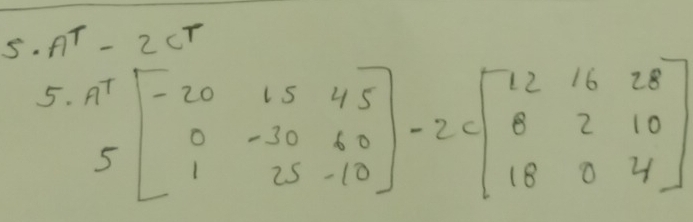 5.A^T - 2C^T
5.A^T [ -20 15 45
0 -30 60
5 1 25 -10 ] - 2C [ 12 16 28
8 2 10
18 0 4 ]